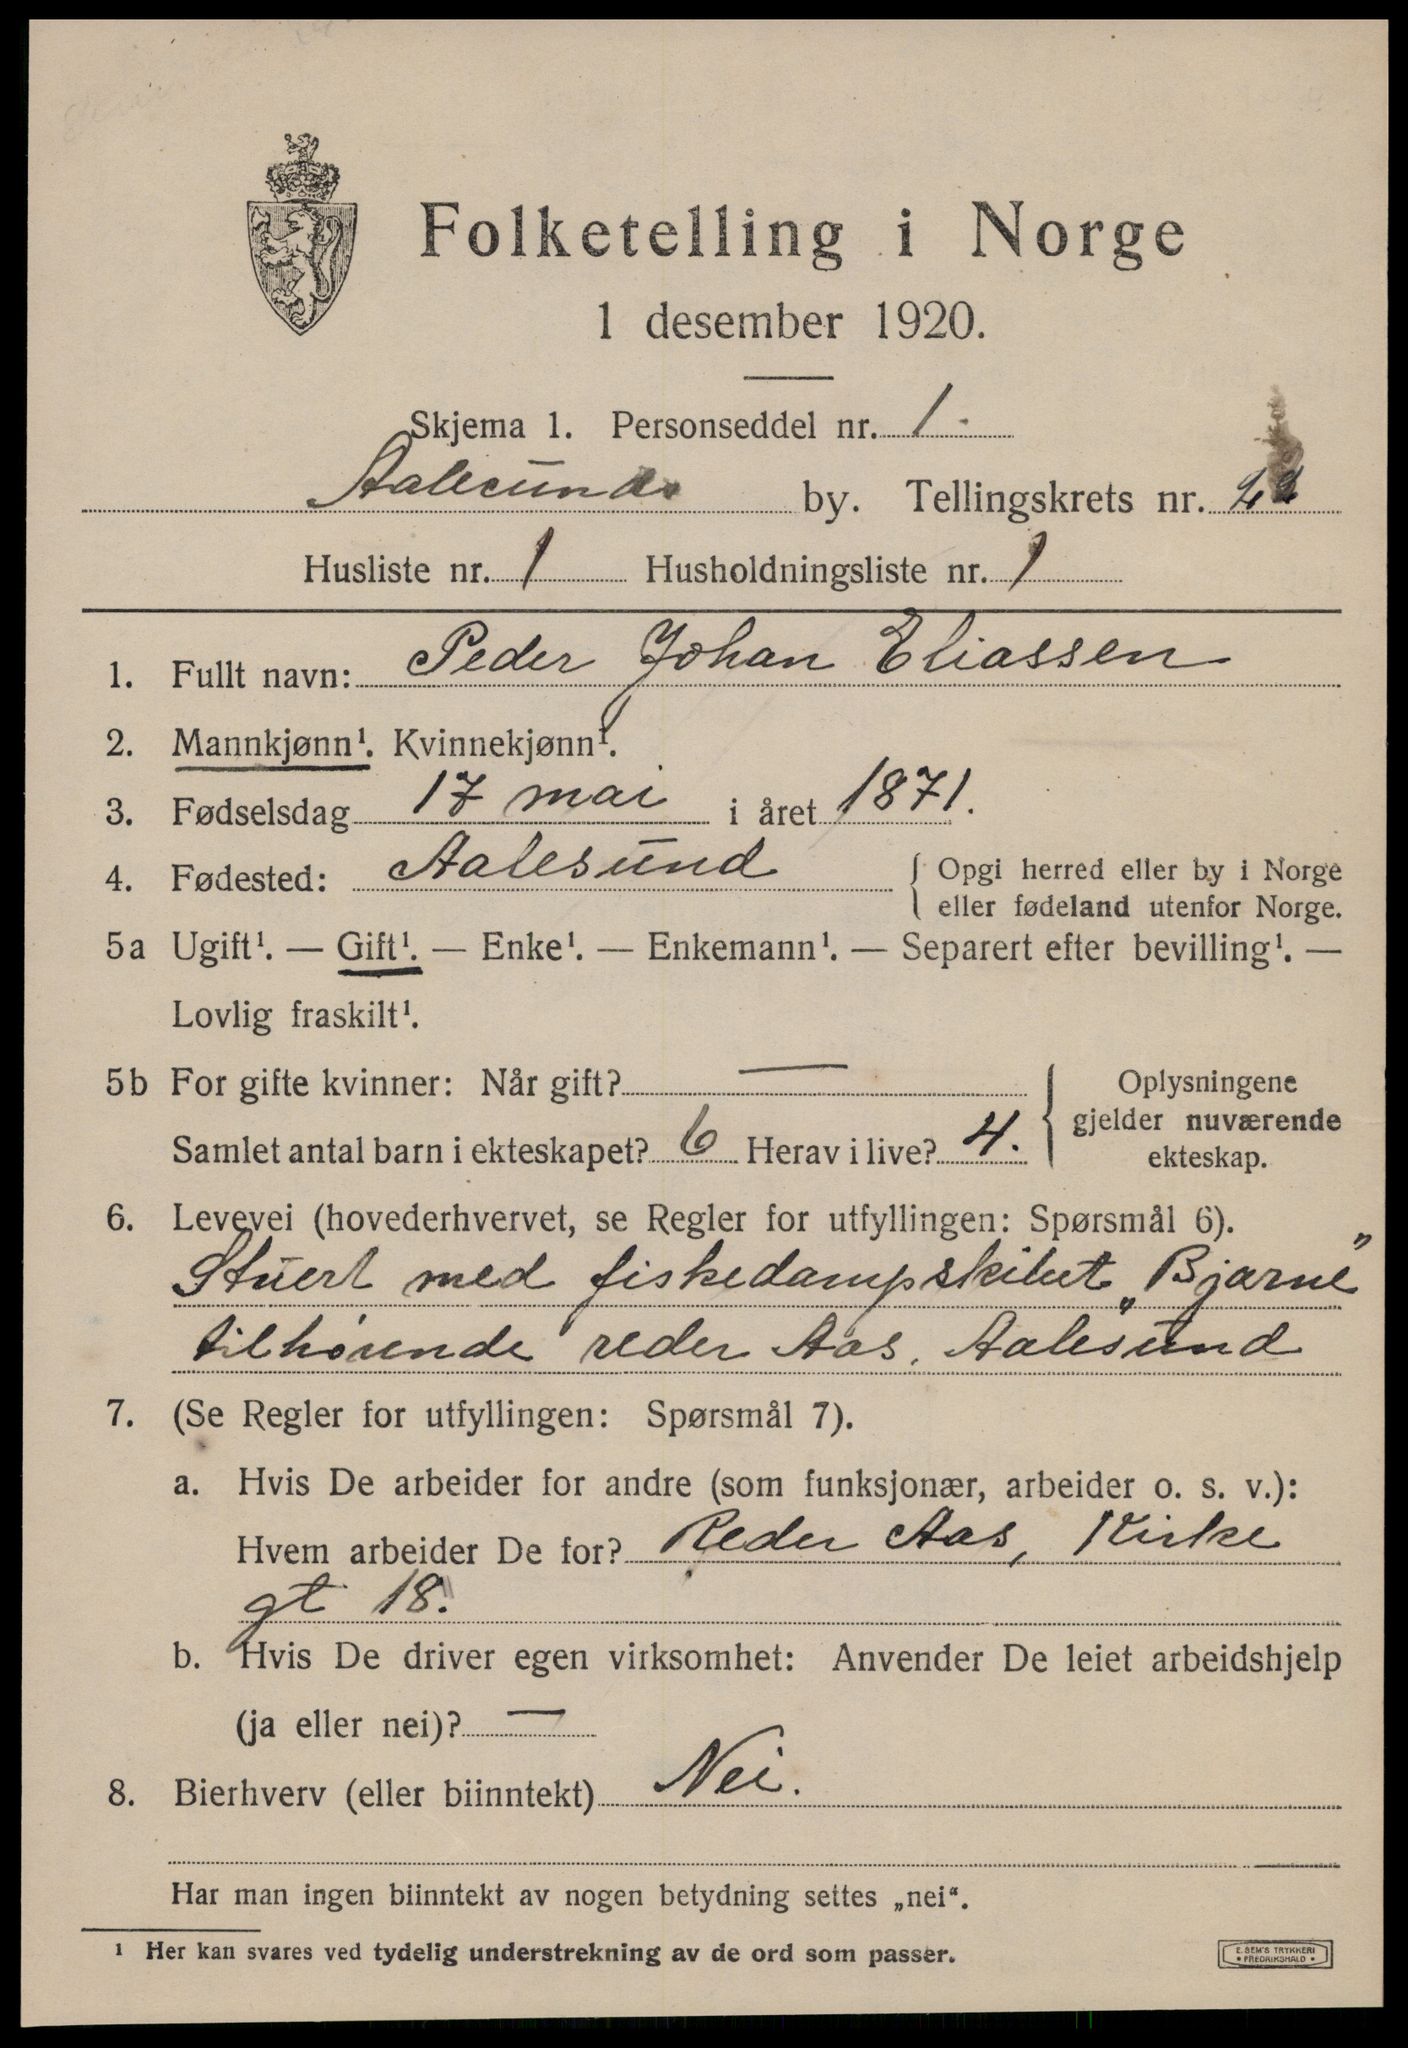 Folketelling i Norge
1 desember 1920.
Skjema 1. Personseddel nr. 1.
Aalesunds by. Tellingskrets nr. 22
Husliste nr. 1 Husholdningsliste nr. 1
1. Fullt navn: Peder Johan Eliassen
2. Mannkjønn¹. Kvinnekjønn¹.
3. Fødselsdag 17 mai i året 1871.
4. Fødested: Aalesund { Opgi herred eller by i Norge
eller fødeland utenfor Norge.
5a Ugift¹. — Gift¹. — Enke¹. — Enkemann¹. — Separert efter bevilling¹. —
Lovlig fraskilt¹.
5b For gifte kvinner: Når gift? —
Samlet antal barn i ekteskapet? 6 Herav i live? 4.
Oplysningene
gjelder nuværende
ekteskap.
6. Levevei (hovederhvervet, se Regler for utfyllingen: Spørsmål 6).
Stuert med fiskedampskibet „Bjarne"
tilhørende reder Aas, Aalesund
7. (Se Regler for utfyllingen: Spørsmål 7).
a. Hvis De arbeider for andre (som funksjonær, arbeider o. s. v.):
Hvem arbeider De for? Reder Aas, Kirke
gt 18.
b. Hvis De driver egen virksomhet: Anvender De leiet arbeidshjelp
(ja eller nei)? —
8. Bierhverv (eller biinntekt) Nei.
Har man ingen biinntekt av nogen betydning settes „nei“.
¹ Her kan svares ved tydelig understrekning av de ord som passer.
E. SEM'S TRYKKERI
• FREDRIKSHALD •